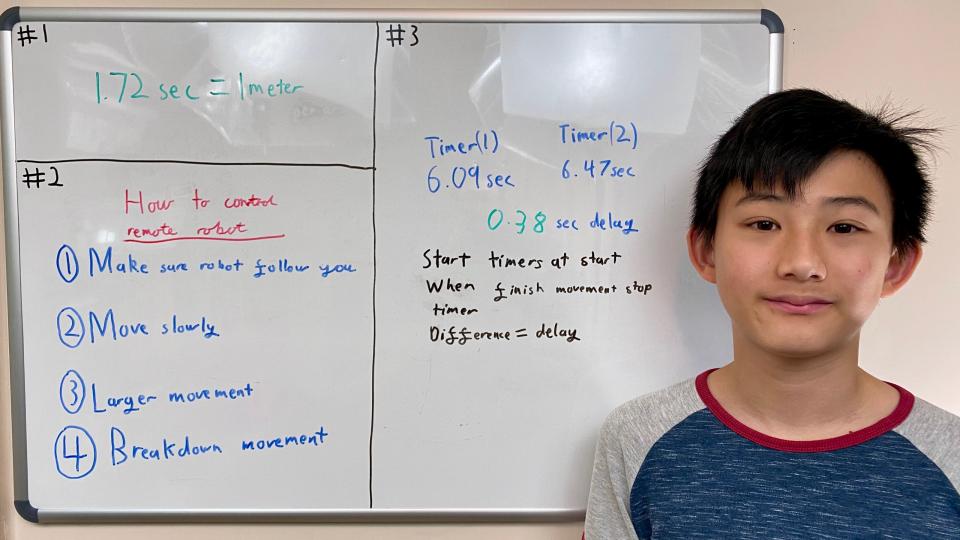 #1
1.72 sec = 1 meter
#2
How to control
remote robot
① Make sure robot follow you
② Move slowly
③ Larger movement
④ Breakdown movement
#3
Timer(1) Timer(2)
6.09 sec 6.47 sec
0.38 sec delay
Start timers at start
When finish movement stop
timer
Difference = delay